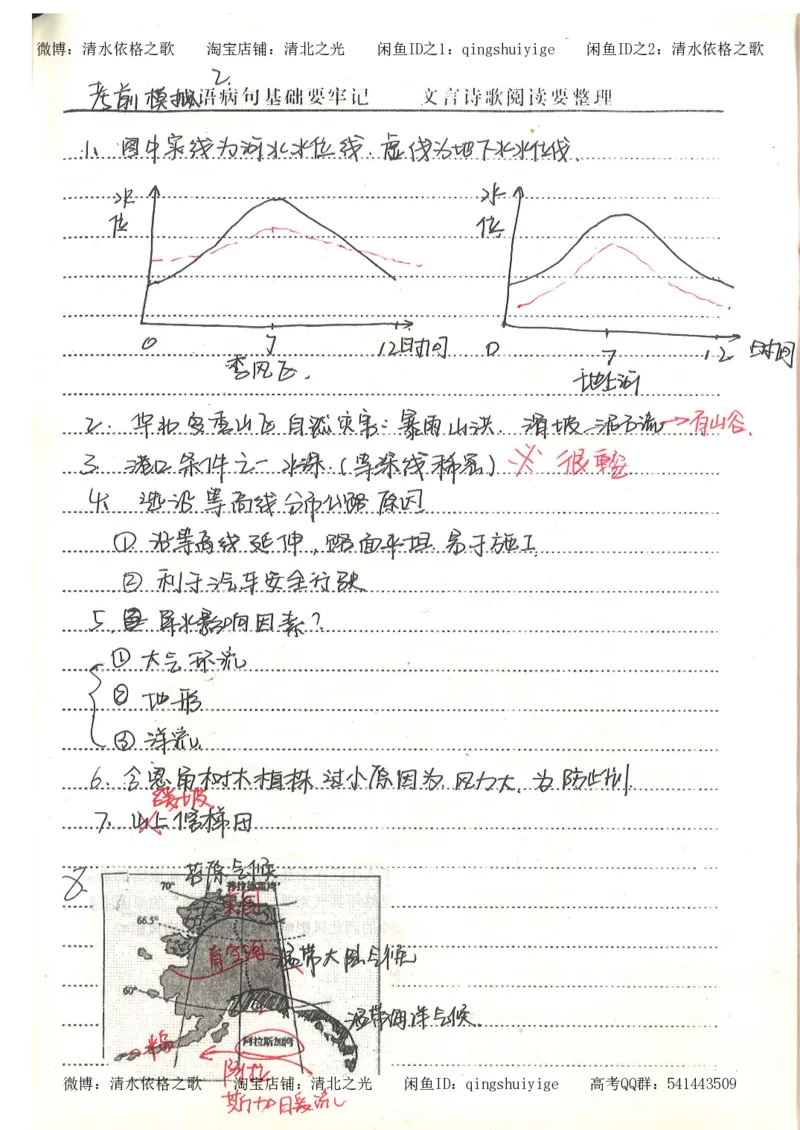 微博：清水依格之歌 淘宝店铺：清北之光 闲鱼ID之1：qingshuiyige 闲鱼ID之2：清水依格之歌
考前模拟2.
语病句基础要牢记 文言诗歌阅读要整理
1、图中实线为河水水位线，虚线为地下水水位线.
水位
水位
0 7 12月时间
0 7 12 时间
季风区.
地上河
2. 华北多季山区自然灾害：暴雨山洪. 滑坡 泥石流→有山谷.
3. 港口条件之一 水深.（等深线稀密）※ 很重要
4. 选沿等高线分布公路原因
① 沿等高线延伸，路面平坦 易于施工
② 利于汽车安全行驶
5. 降水影响因素？
① 大气环流
② 地形
③ 洋流.
6. 合恩角树木植株过小原因为风力大.
缓坡
7. 山上修梯田
8.
苔原气候
70° 普拉德霍湾
66.5°
育空海
温带大陆气候
60°
温带海洋气候.
阿拉斯加湾
阿拉斯加暖流
微博：清水依格之歌 淘宝店铺：清北之光 闲鱼ID：qingshuiyige 高考QQ群：541443509